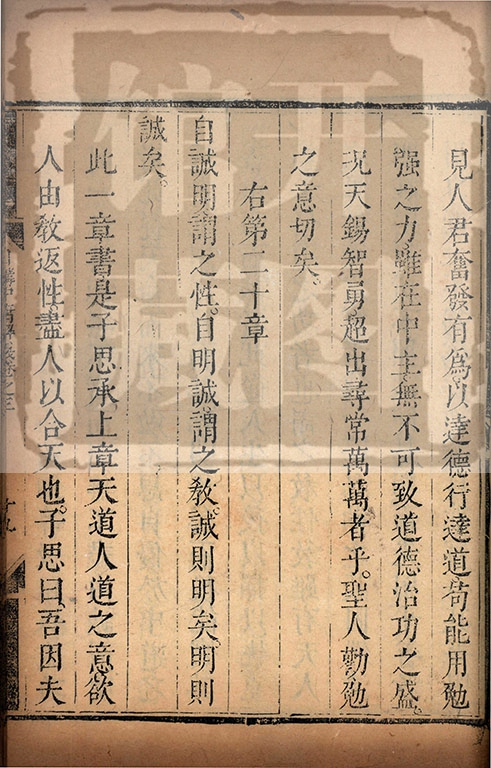 見人君奮發有爲以達德行達道苟能用勉
强之力雖在中主無不可致道德治功之盛
况天錫智勇超出尋常萬萬者乎聖人勸勉
之意切矣。
右第二十章
自誠明謂之性。自明誠謂之教。誠則明矣。明則
誠矣。
此一章書是子思承上章天道人道之意欲
人由教返性盡人以合天也。子思曰吾因夫
十九